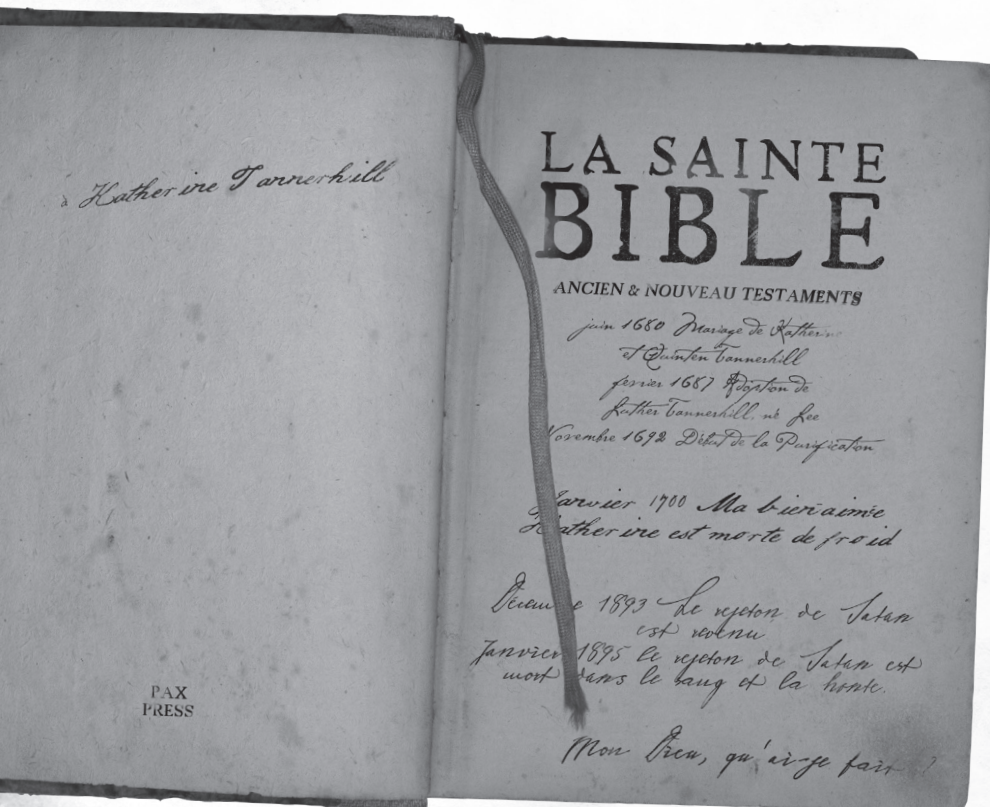 à Katherine Tannerhill
PAX
PRESS
LA SAINTE
BIBLE
ANCIEN & NOUVEAU TESTAMENTS
juin 1680 Mariage de Katherine
et Quinten Tannerhill
fevrier 1687 Adoption de
Luther Tannerhill. né Lee
Novembre 1692 Début de la Purification
Janvier 1700 Ma bien aimée
Katherine est morte de froid
Décembre 1893 Le rejeton de Satan
est revenu
Janvier 1895 le rejeton de Satan est
mort dans le sang et la honte.
Mon Dieu, qu'ai-je fait ?